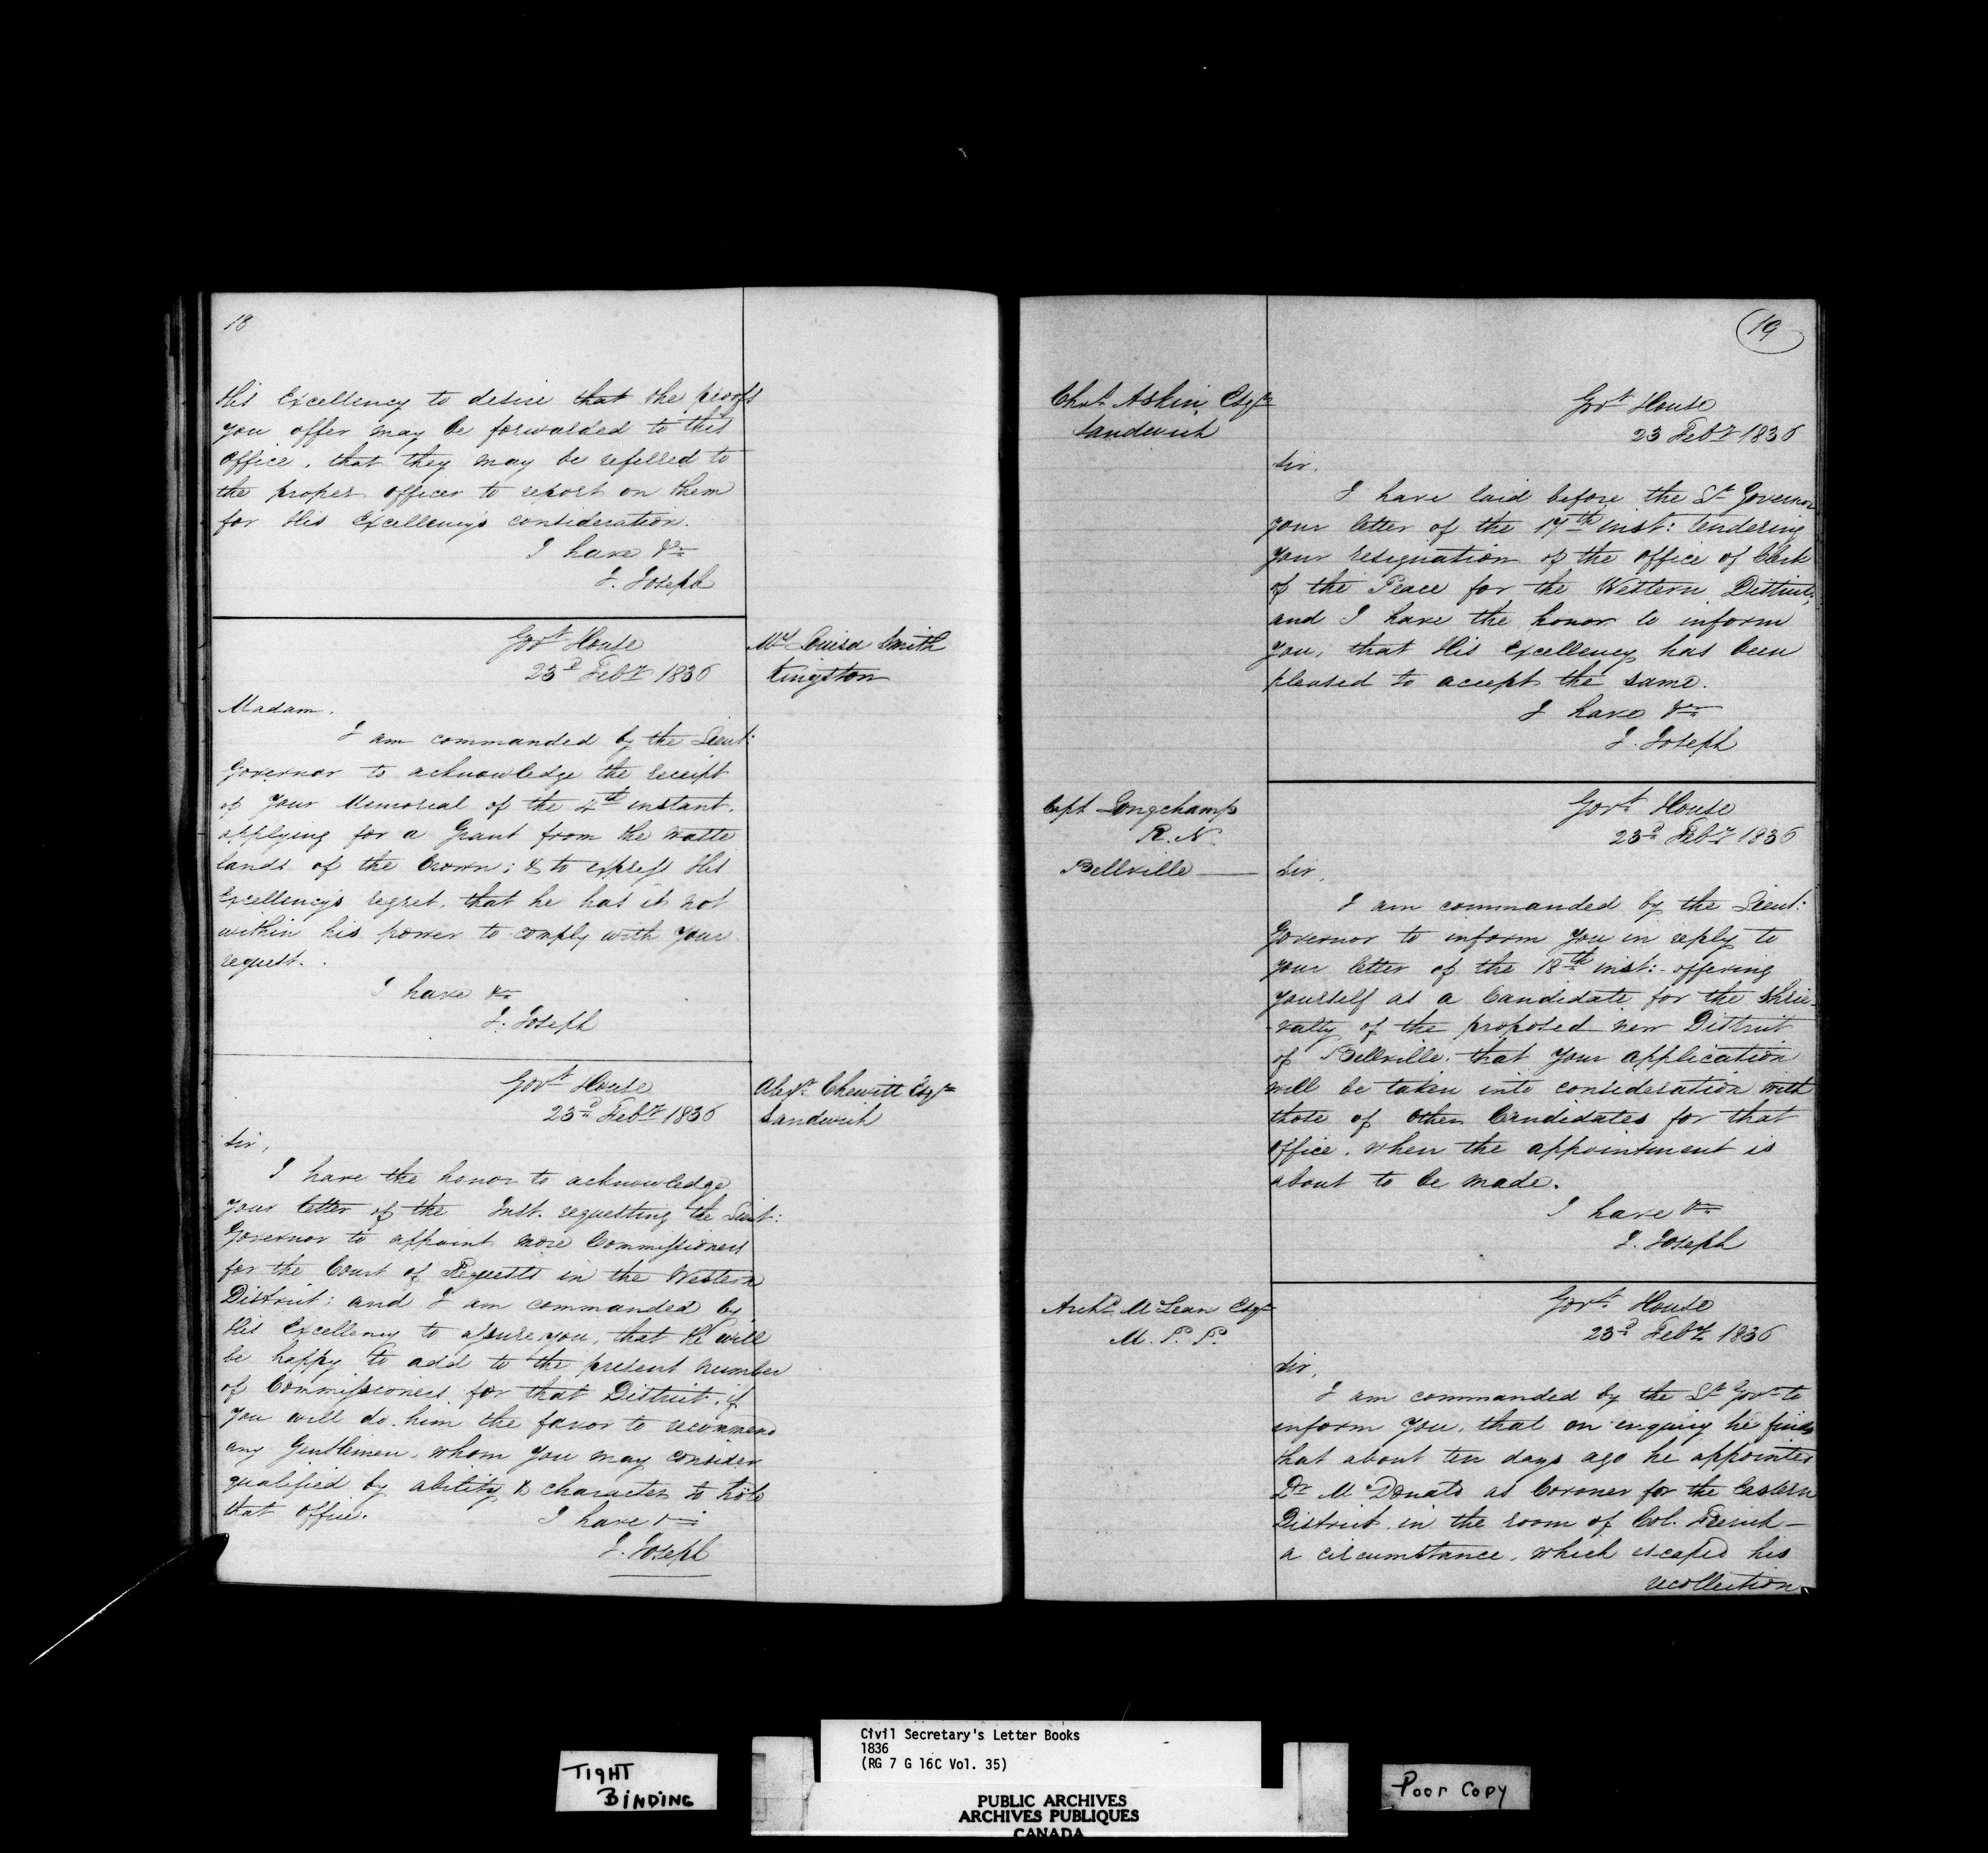 18
His Excellency to desire that the proofs
you offer may be forwarded to this
Office, that they may be referred to
the proper officer to report on them
for His Excellency's consideration.
I have &c
J. Joseph
Govt House
23d Feby 1836
Mrs Louisa Smith
Kingston
Madam.
I am commanded by the Lieut:
Governor to acknowledge the receipt
of your Memorial of the 4th instant,
applying for a Grant from the waste
lands of the Crown; & to express His
Excellency's regret, that he has it not
within his power to comply with your
request.
I have &c
J. Joseph
Govt House
23d Feby 1836
Alexr Chewitt Esqre
Sandwich
Sir,
I have the honor to acknowledge
your letter of the Inst. requesting the Lieut:
Governor to appoint more Commissioners
for the Court of Requests in the Western
District; and I am commanded by
His Excellency to assure you, that He will
be happy to add to the present number
of Commissioners for that District, if
you will do him the favor to recommend
any Gentlemen, whom you may consider
qualified by ability & character to hold
that Office.
I have &c
J. Joseph
19
Chas Askin Esqre
Sandwich
Govt House
23 Feby 1836
Sir,
I have laid before the Lt Governor
your letter of the 17th inst: tendering
your resignation of the office of Clerk
of the Peace for the Western District,
and I have the honor to inform
you, that His Excellency has been
pleased to accept the same.
I have &c
J. Joseph
Capt Longchamp
R. N.
Bellville
Govt House
23d Feby 1836
Sir,
I am commanded by the Lieut:
Governor to inform you in reply to
your letter of the 18th inst: offering
yourself as a Candidate for the Shrie-
-valty of the proposed new District
of Bellville, that your application
will be taken into consideration with
those of other Candidates for that
Office, when the appointment is
about to be made.
I have &c
J. Joseph
Archd McLean Esqre
M. P. P.
Govt House
23d Feby 1836
Sir,
I am commanded by the Lt Govr to
inform you, that on enquiry he finds
that about ten days ago he appointed
Dr McDonald as Coroner for the Eastern
District, in the room of Col. French -
a circumstance, which escaped his
recollection
TIGHT
BINDING
Civil Secretary's Letter Books
1836
(RG 7 G 16C Vol. 35)
PUBLIC ARCHIVES
ARCHIVES PUBLIQUES
CANADA
Poor Copy